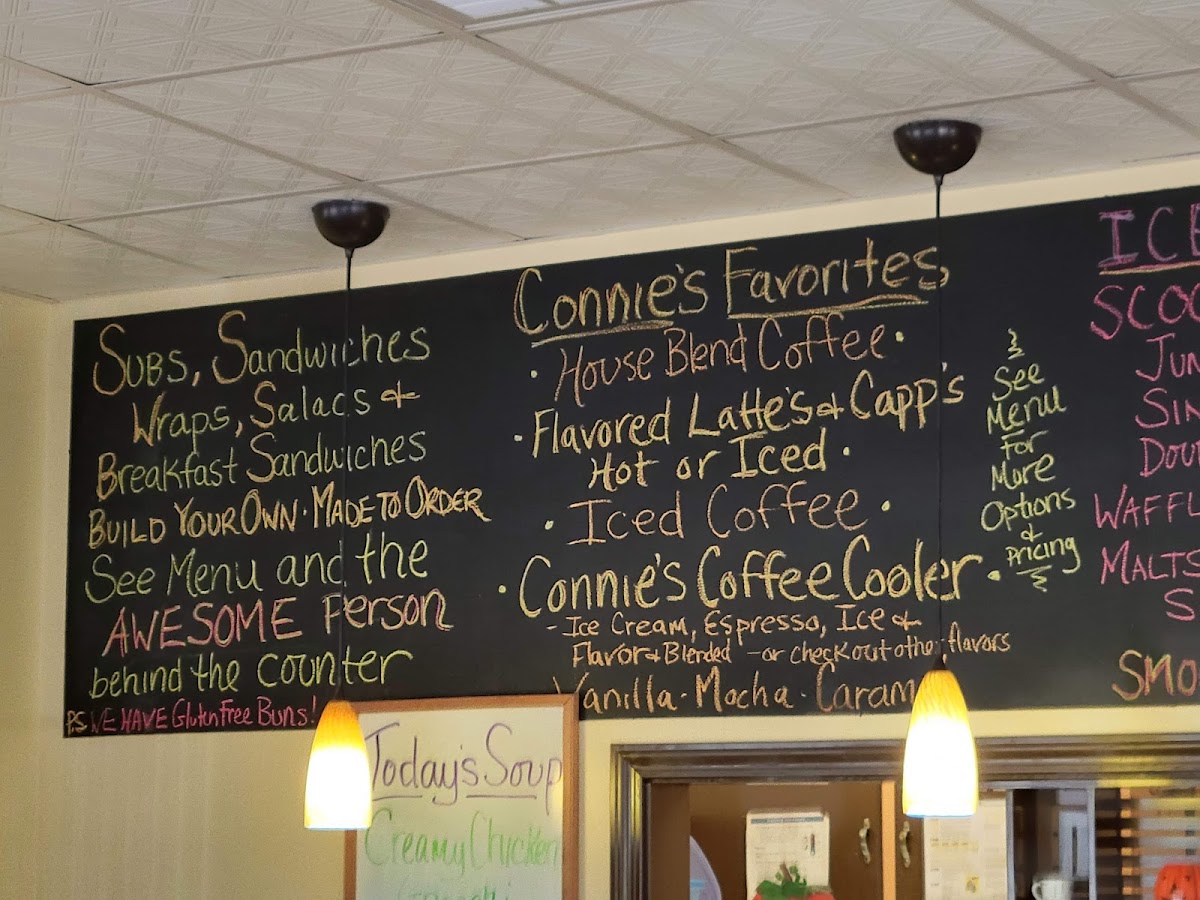 Subs, Sandwiches
Wraps, Salads &
Breakfast Sandwiches
BUILD YOUR OWN · MADE TO ORDER
See Menu and the
AWESOME Person
behind the counter
P.S WE HAVE Gluten Free Buns!
Connie's Favorites
· House Blend Coffee ·
· Flavored Latte's & Capp's
Hot or Iced ·
· Iced Coffee ·
· Connie's Coffee Cooler ·
- Ice Cream, Espresso, Ice &
Flavor & Blended - or check out other flavors
Vanilla · Mocha · Caram
See
Menu
For
More
Options
&
Pricing
ICE
SCOO
JUN
SIN
DOU
WAFFL
MALTS
S
SMO
Today's Soup
Creamy Chicken